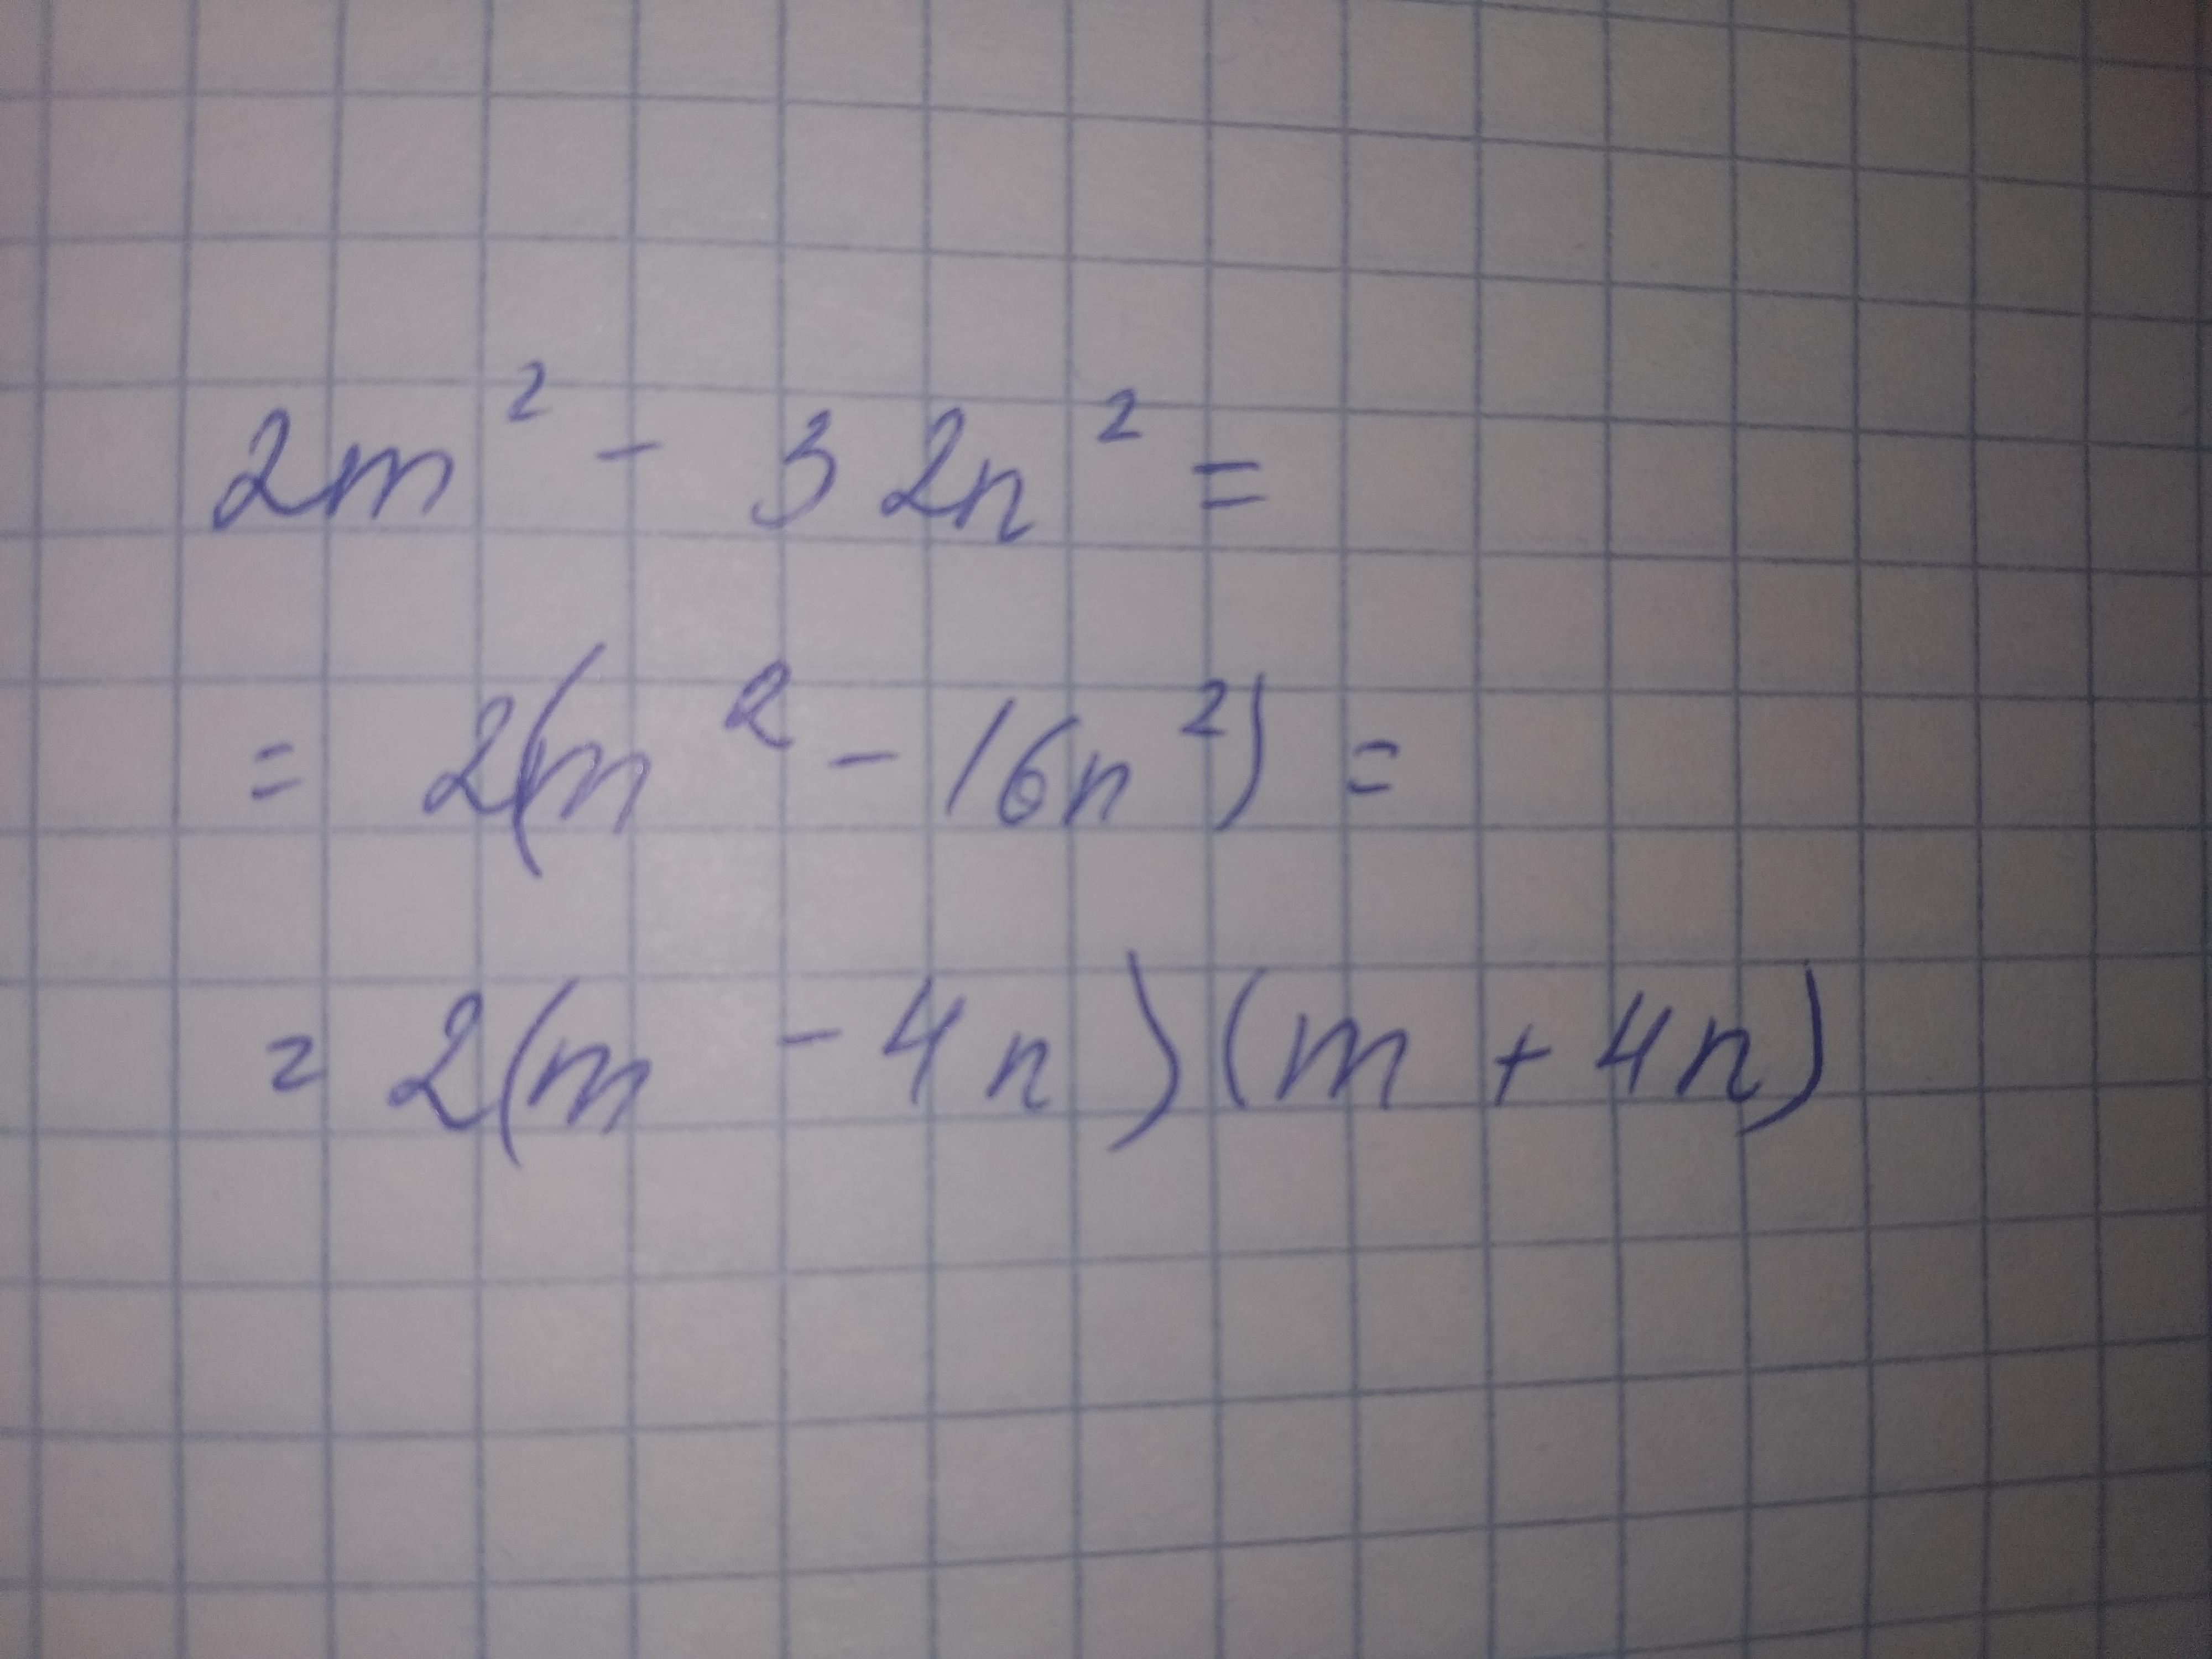 2m² - 32n² =
= 2(m² - 16n²) =
= 2(m - 4n)(m + 4n)